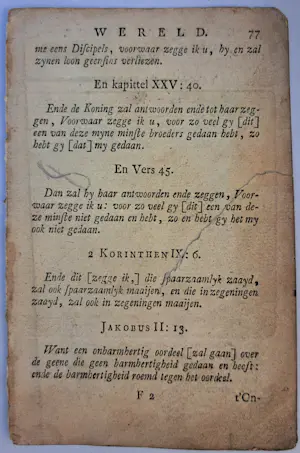 WERELD. 77
me eens Diſcipels, voorwaar zegge ik u, hy en zal
zynen loon geenſins verliezen.
En kapittel XXV: 40.
Ende de Koning zal antwoorden ende tot haar zeg-
gen, Voorwaar zegge ik u, voor zo veel gy [dit]
een van deze myne minſte broeders gedaan hebt, zo
hebt gy [dat] my gedaan.
En Vers 45.
Dan zal hy haar antwoorden ende zeggen, Voor-
waar zegge ik u: voor zo veel gy [dit] een van de-
ze minſte niet gedaan en hebt, zo en hebt gy het my
ook niet gedaan.
2 KORINTHEN IX: 6.
Ende dit [zegge ik,] die ſpaarzaamlyk zaayd,
zal ook ſpaarzaamlyk maaijen, en die in zegeningen
zaayd, zal ook in zegeningen maaijen.
JAKOBUS II: 13.
Want een onbarmhertig oordeel [zal gaan] over
de geene die geen barmhertigheid gedaan en heeft:
ende de barmhertigheid roemd tegen het oordeel.
F 2 t'On-